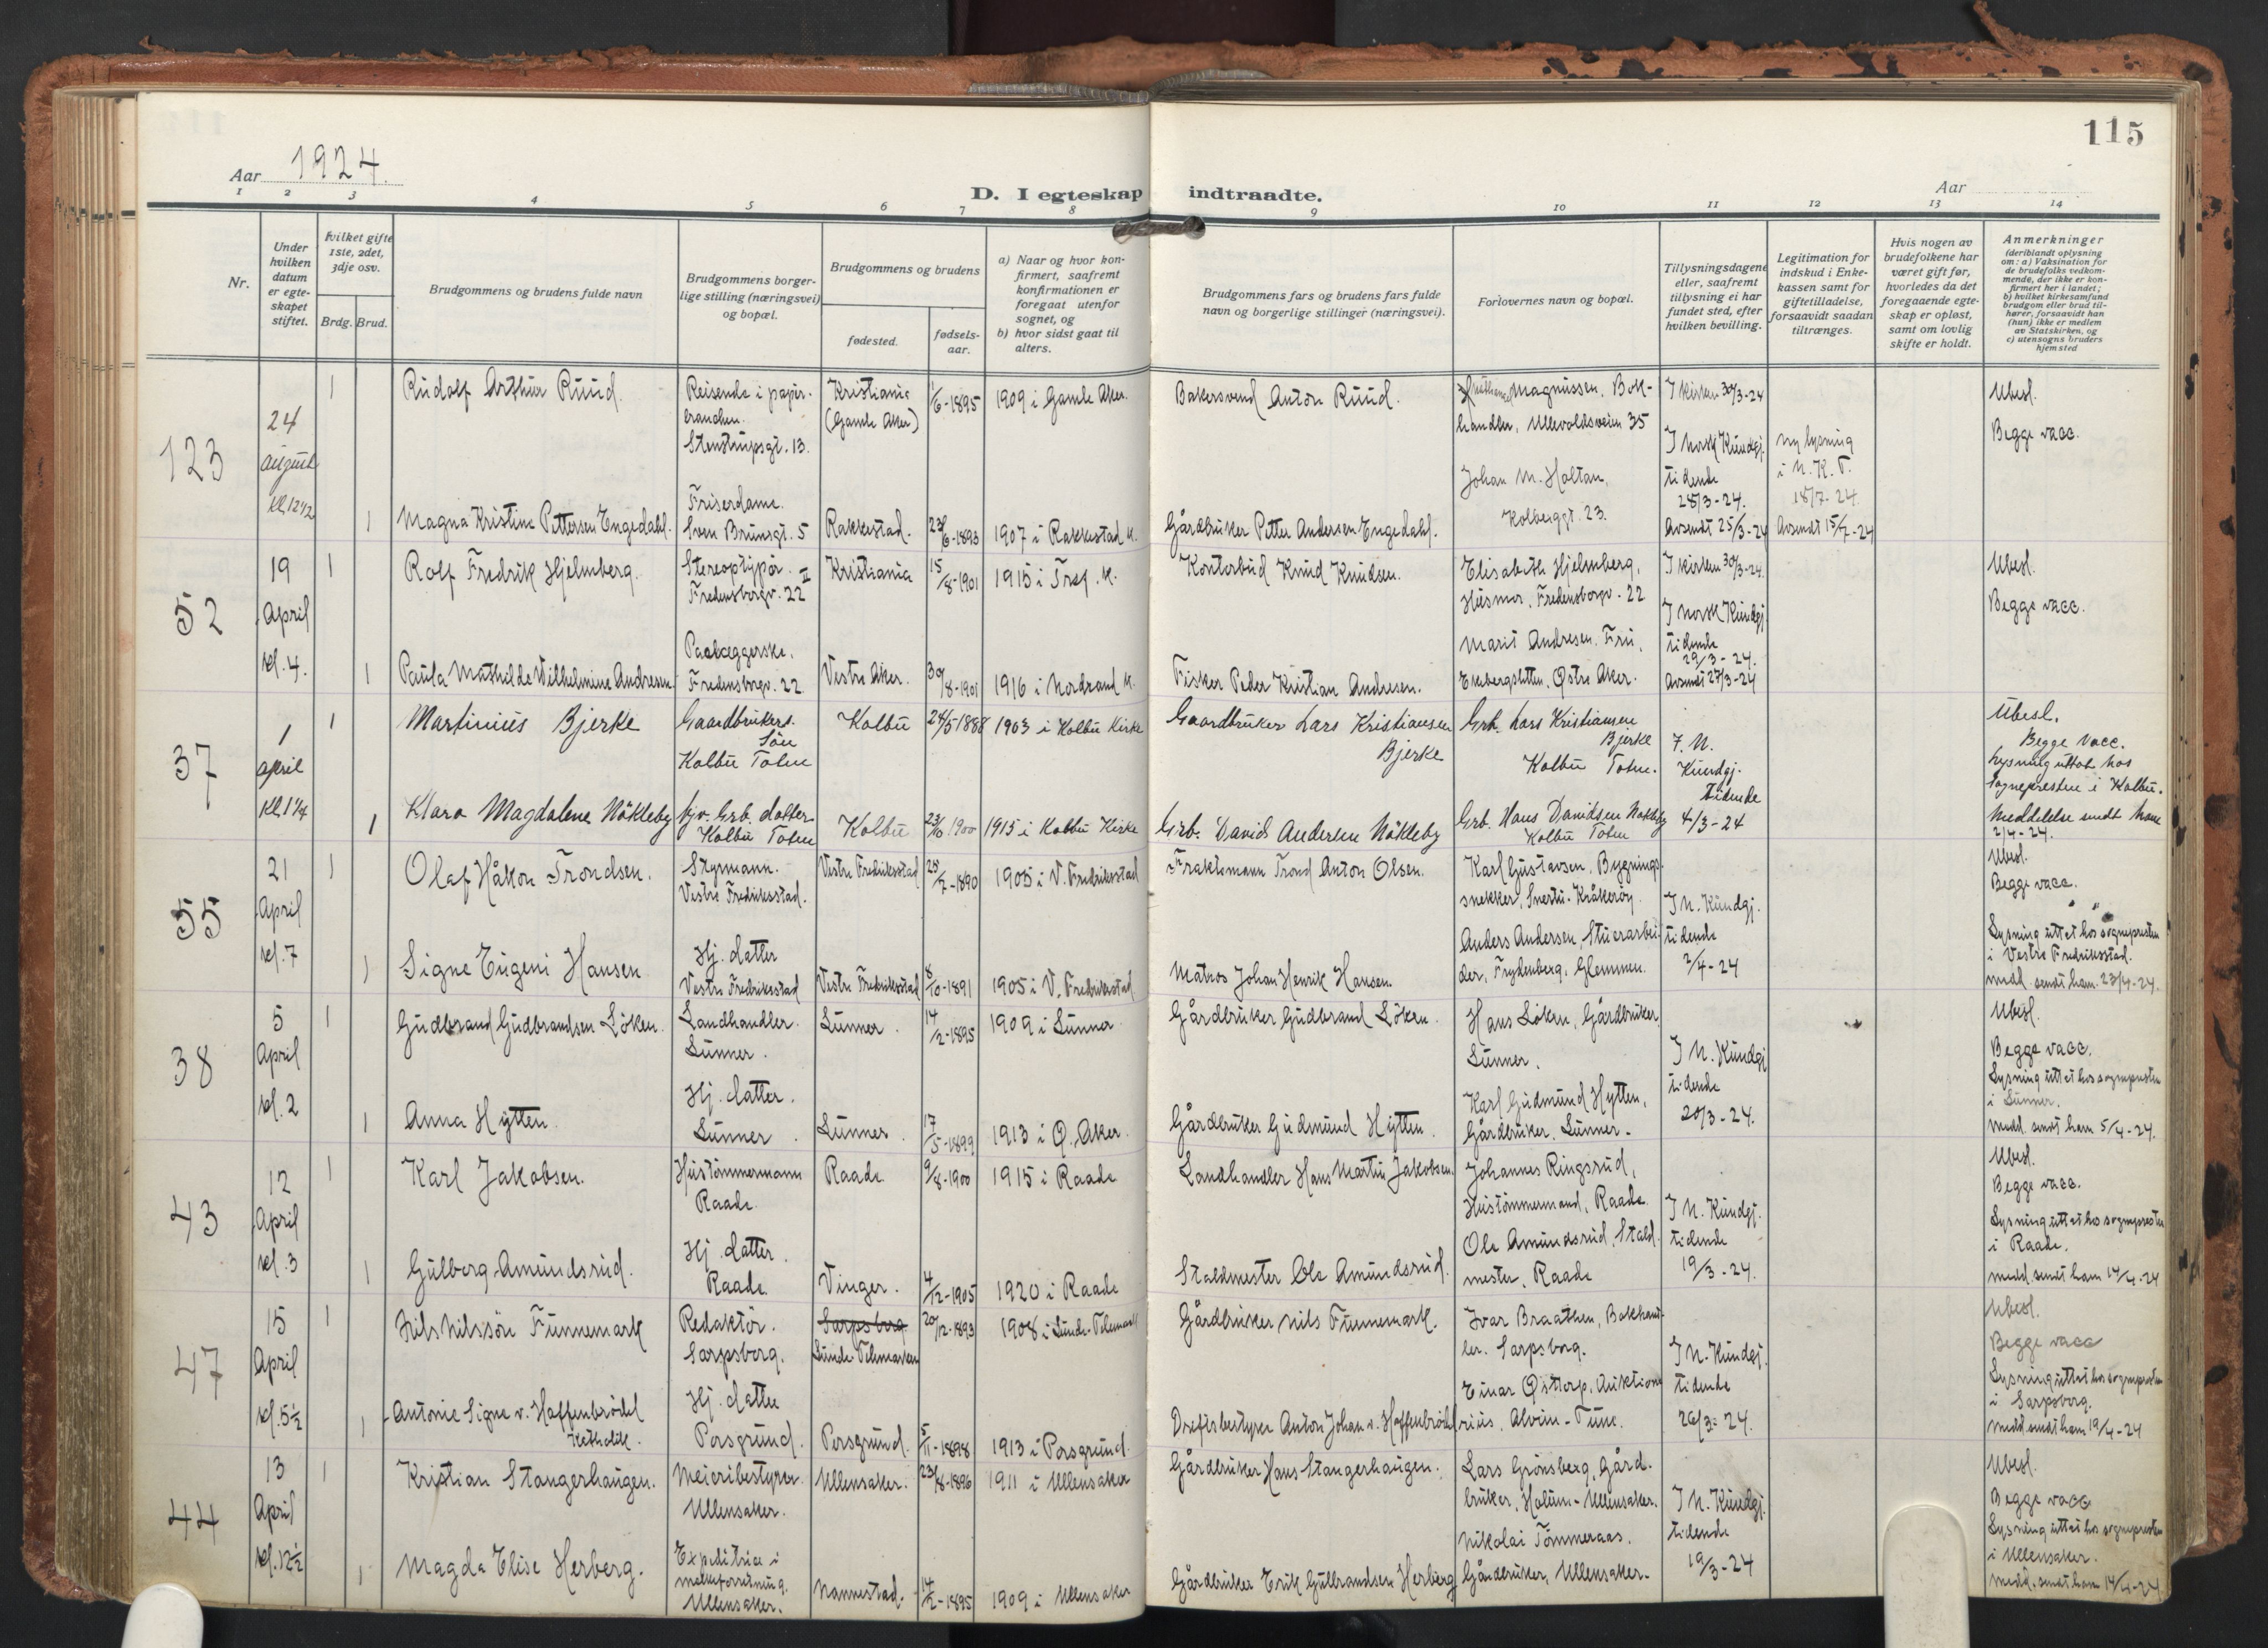 115
Aar 1924.
Aar
D. I egteskap indtraadte.
1 2 3 4 5 6 7 8 9 10 11 12 13 14
Nr.
Under hvilken datum er egteskapet stiftet.
hvilket gifte 1ste, 2det, 3dje osv.
Brdg. Brud.
Brudgommens og brudens fulde navn
Brudgommens borgerlige stilling (næringsvei) og bopæl.
Brudgommens og brudens
fødested.
fødselsaar.
a) Naar og hvor konfirmert, saafremt konfirmationen er foregaat utenfor sognet, og
b) hvor sidst gaat til alters.
Brudgommens fars og brudens fars fulde navn og borgerlige stillinger (næringsvei).
Forlovernes navn og bopæl.
Tillysningsdagene eller, saafremt tillysning ei har fundet sted, efter hvilken bevilling.
Legitimation for indskud i Enkekassen samt for giftetilladelse, forsaavidt saadan tiltrænges.
Hvis nogen av brudefolkene har været gift før, hvorledes da det foregaaende egteskap er opløst, samt om lovlig skifte er holdt.
Anmerkninger
(deriblandt oplysning om: a) Vaksination for de brudefolks vedkommende, der ikke er konfirmert her i landet; b) hvilket kirkesamfund brudgom eller brud tilhører, forsaavidt han (hun) ikke er medlem av Statskirken, og c) utensogns bruders hjemsted
123
24 august kl 12 1/2
1 Rudolf Arthur Ruud.
Reisende i papirbranchen. Stenstrupsgt. 13.
Kristiania (Gamle Aker)
1/6-1895
1909 i Gamle Aker.
Bakersvend Anton Ruud.
Magnussen, Bokhandler, Ullevoldsveien 35
I kirken 30/3-24
I Norsk Kundgj. tidende 28/3-24.
Avsendt 25/3-24
ny lysning i N.K.T. 18/7-24.
Avsendt 15/7-24
Ubesl.
Begge vacc.
1 Magna Kristine Pettersen Engedahl.
Friserdame. Sven Brunsgt. 5
Rakkestad.
23/6-1893
1907 i Rakkestad K.
Gårdbruker Petter Andersen Engedahl.
Johan M. Holtan, Kolberggt. 23.
52
19 April kl. 4.
1 Rolf Fredrik Hjelmberg.
Stereoptypør. Fredensborgv. 22 II
Kristiania
15/8-1901
1915 i Tref. K.
Kontorbud Knud Knudsen.
Elisabeth Hjelmberg, Husmor, Fredensborgv. 22
I kirken 30/3-24.
I Norsk Kundgj. tidende 29/3-24.
Avsendt 27/3-24
Ubesl.
Begge vacc.
1 Paula Mathilde Wilhelmine Andresen
Paalæggerske. Fredensborgv. 22
Vestre Aker.
30/8-1901
1916 i Nordrand K.
Fisker Peder Kristian Andresen.
Marit Andresen, Fru, Ekebergsletten, Østre Aker.
37
1 april Kl 1 1/4
1 Martinius Bjerke
Gaardbrukers. Søn Kolbu Toten
Kolbu
24/5 1888
1903 i Kolbu Kirke
Gaardbruker Lars Kristiansen Bjerke
Grb. Lars Kristiansen Bjerke Kolbu Toten.
I. N. Kundgj. tidende 4/3-24
Ubesl.
Begge vacc.
Lysning uttat hos sognepresten i Kolbu.
Meddelelse sendt ham 2/4-24.
1 Klara Magdalene Nökleby
hjv. Grb. datter Kolbu Toten
Kolbu
23/10 1900
1915 i Kolbu Kirke
Grb. David Andersen Nökleby
Grb. Hans Davidsen Nökleby Kolbu Toten
55
21 April kl. 7
1 Olaf Håkon Trondsen.
Styrmann. Vestre Fredriksstad.
Vestre Fredriksstad
25/7-1890
1905 i V. Fredriksstad
Fraktemann Trond Anton Olsen.
Karl Gustavsen, Bygningssnekker, Snertu-Kråkerøy.
I N. Kundgj. tidende 2/4-24
Ubesl.
Begge vacc.
Lysning uttat hos sognepresten i Vestre Fredriksstad.
medd. sendt ham 23/4-24.
1 Signe Eugeni Hansen
Hj. datter Vestre Fredriksstad
Vestre Fredriksstad
8/10-1891
1905 i V. Fredriksstad
Matros Johan Henrik Hansen
Anders Andersen, Stuerarbeider, Frydenberg, Glemmen.
38
5 April kl. 2
1 Gudbrand Gudbrandsen Löken.
Landhandler. Lunner.
Lunner.
14/2-1895
1909 i Lunner
Gårdbruker Gudbrand Löken.
Hans Löken, Gårdbruker, Lunner.
I N. Kundgj tidende 20/3-24.
Ubesl.
Begge vacc.
Lysning uttat hos sognepresten i Lunner.
medd. sendt ham 5/4-24.
1 Anna Hytten.
Hj. datter. Lunner.
Lunner.
17/5-1899
1913 i Ø. Aker.
Gårdbruker Gudmund Hytten.
Karl Gudmund Hytten, Gårdbruker, Lunner.
43
12 April kl. 3
1 Karl Jakobsen.
Hustömmermann Raade.
Raade.
9/8-1900
1915 i Raade
Landhandler Hans Martin Jakobsen.
Johannes Ringsrud, Hustömmermand, Raade.
I N. Kundgj. tidende 19/3-24.
Ubesl.
Begge vacc.
Lysning uttat hos sognepresten i Raade.
medd. sendt ham 14/4-24
1 Gulborg Amundsrud.
Hj. datter. Raade.
Vinger.
4/12-1905
1920 i Raade
Staldmester Ole Amundsrud.
Ole Amundsrud, Staldmester, Raade
47
15 April kl. 5 1/2
1 Nils Nilssön Funnemark
Redaktör. Sarpsborg.
Sarpsborg Lunde Telemarken
20/12-1893
1908 i Lunde-Telemark
Gårdbruker Nils Funnemark.
Ivar Braathen, Bokhandler. Sarpsborg.
I N. Kundgj. tidende 26/3-24.
Ubesl.
Begge vacc
Lysning uttat hos sognepresten i Sarpsborg.
medd sendt ham 19/4-24
1 Antonie Signe v. Haffenbrödel
Katholik.
Hj. datter Porsgrund.
Porsgrund.
5/11-1898
1913 i Porsgrund.
Driftsbestyrer Anton Johan v. Haffenbrödel
Einar Østtorp, Auktionarius, Alvim-Tune.
44
13 April kl. 12 1/2
1 Kristian Stangerhaugen.
Meieribestyrer. Ullensaker.
Ullensaker.
23/8-1896
1911 i Ullensaker
Gårdbruker Hans Stangerhaugen.
Lars Grönsberg, Gårdbruker, Holum-Ullensaker.
I N. Kundgj. tidende 19/3-24
Ubesl.
Begge vacc
Lysning uttat hos sognepresten i Ullensaker.
medd. sendt ham 14/4-24
1 Magda Elise Herberg.
Expeditrice i melkeforretning. Ullensaker.
Nannestad.
14/2-1895
1909 i Ullensaker
Gårdbruker Erik Gulbrandsen Herberg
Nikolai Tömmeraas. Gårdbruker, Ullensaker.